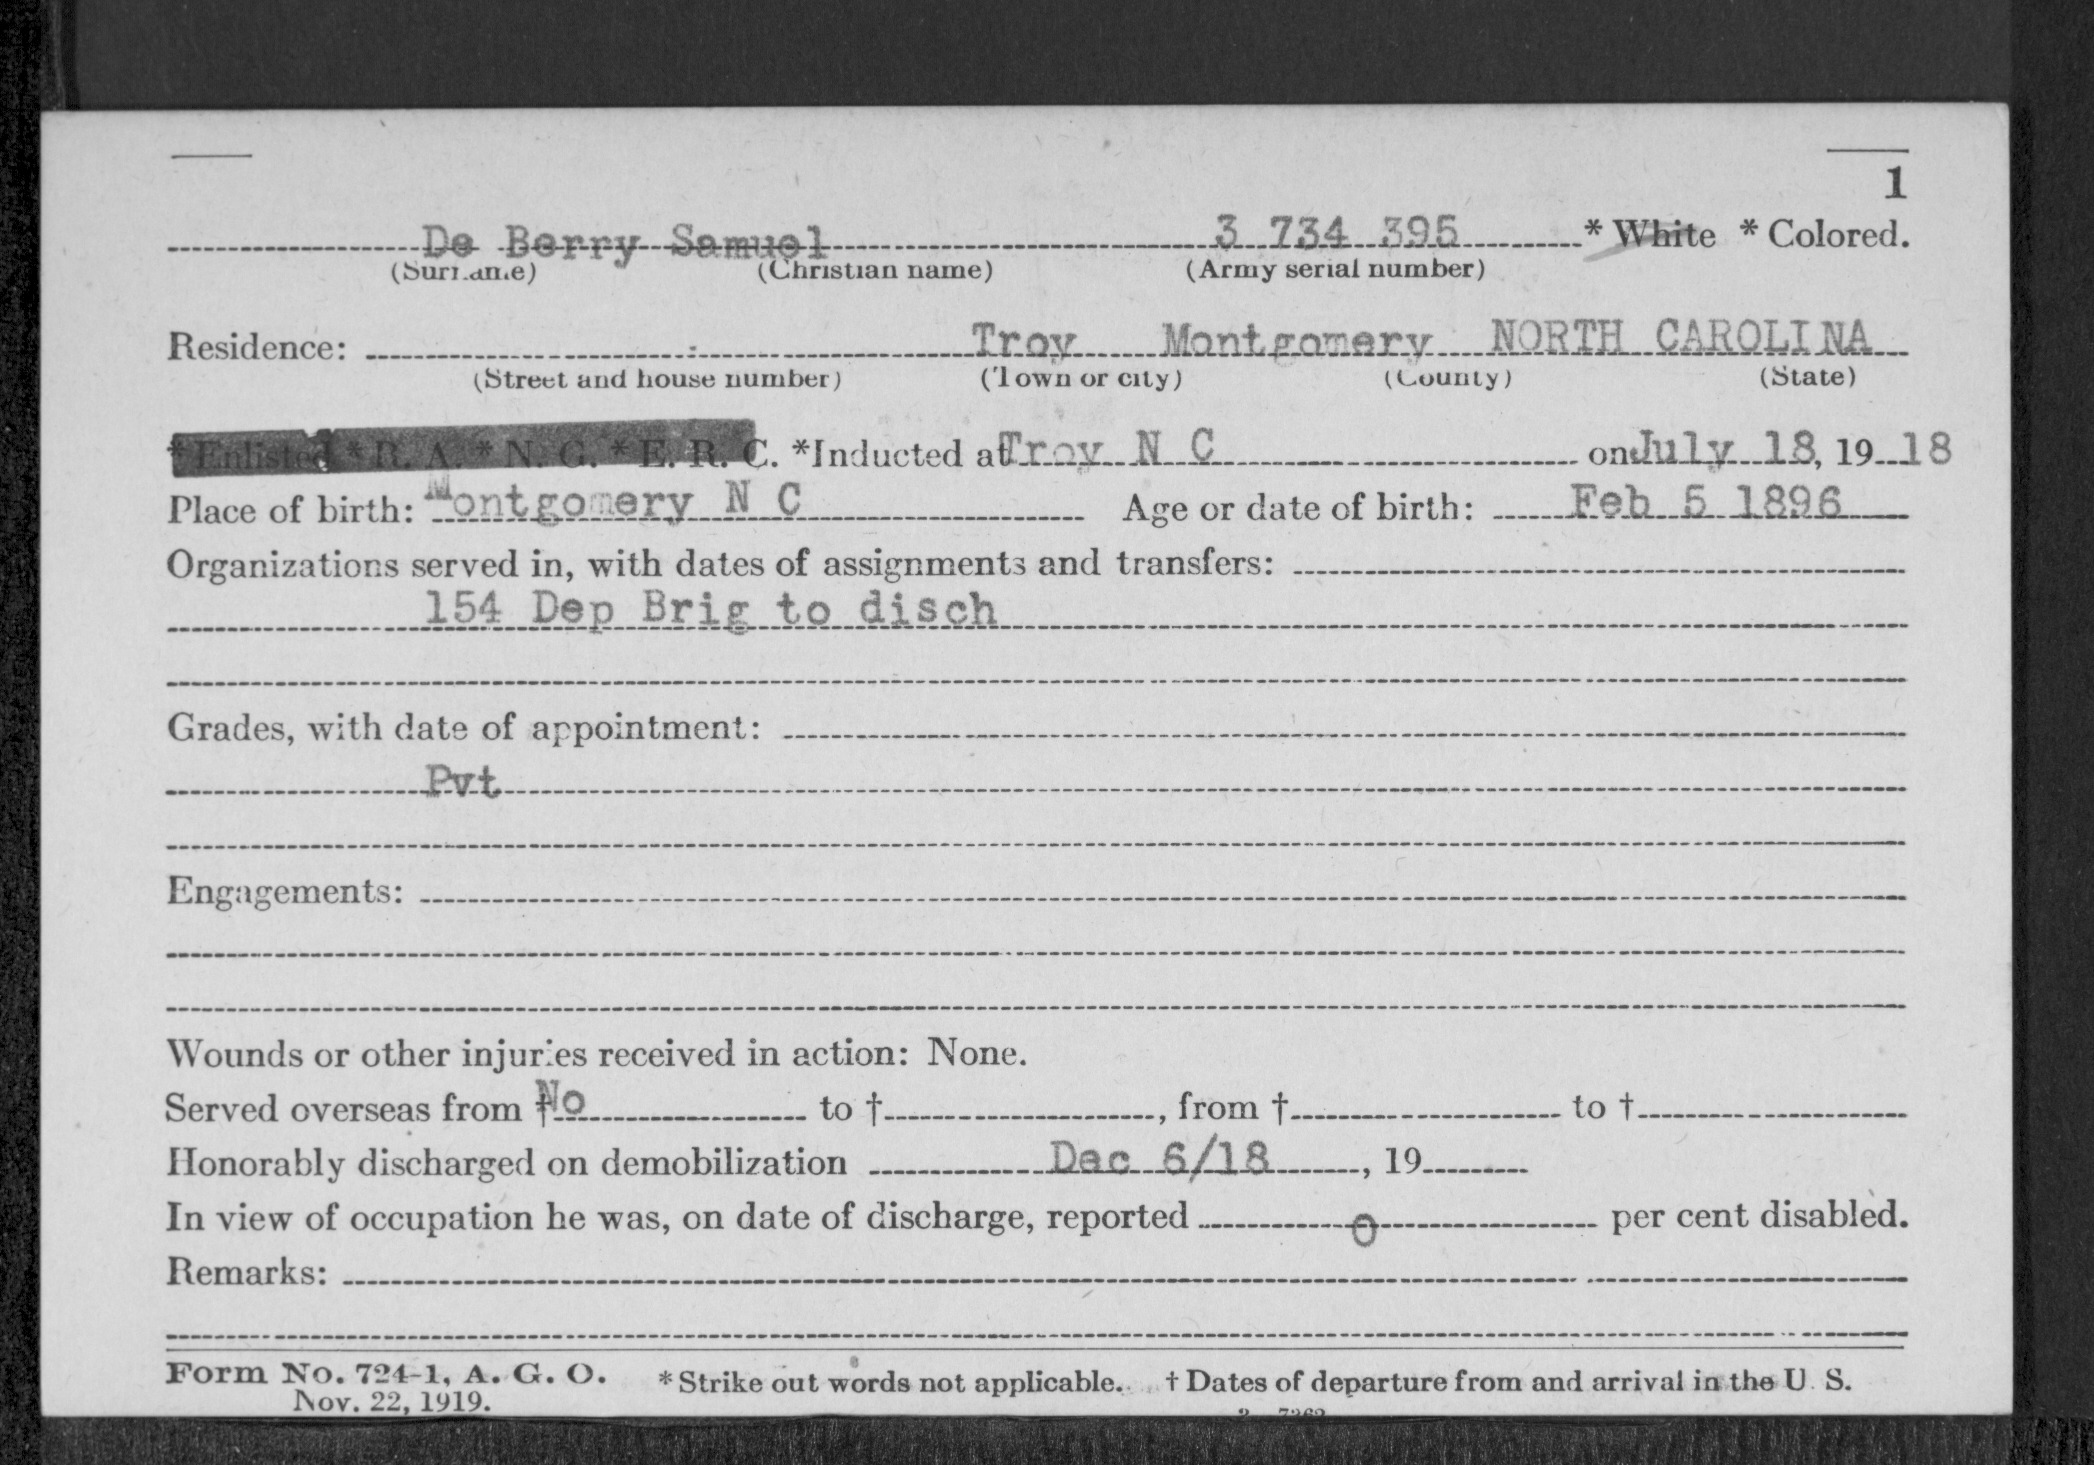 1
De Berry Samuel 3 734 395 * White * Colored.
(Surname) (Christian name) (Army serial number)
Residence: Troy Montgomery NORTH CAROLINA
(Street and house number) (Town or city) (County) (State)
* Enlisted * R. A. * N. G. * E. R. C. *Inducted at Troy N C on July 18, 19 18
Place of birth: Montgomery N C Age or date of birth: Feb 5 1896
Organizations served in, with dates of assignments and transfers:
154 Dep Brig to disch
Grades, with date of appointment:
Pvt
Engagements:
Wounds or other injuries received in action: None.
Served overseas from † No to †, from † to †
Honorably discharged on demobilization Dec 6/18, 19
In view of occupation he was, on date of discharge, reported 0 per cent disabled.
Remarks:
Form No. 724-1, A. G. O. * Strike out words not applicable. † Dates of departure from and arrival in the U. S.
Nov. 22, 1919.